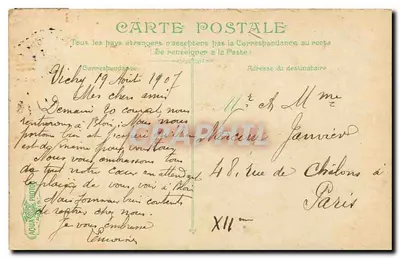 CARTE POSTALE
Tous les pays étrangers n'acceptent pas la Correspondance au recto
(Se renseigner à la Poste)
Correspondance
Adresse du destinataire
Vichy 19 Août 1907
Mes chers amis
Demain 20 courant nous
rentrons à Blois. Nous nous
portons bien et
de même pour vous
Nous vous embrassons tous
de tout notre cœur en attendant
le plaisir de vous voir à Blois
Nous sommes bien contents
de rentrer chez nous.
Je vous embrasse
Mr & Mme
Janvier
48, rue de Châlons à
Paris
XIIme
CPARAMA
AQUA PHOTO